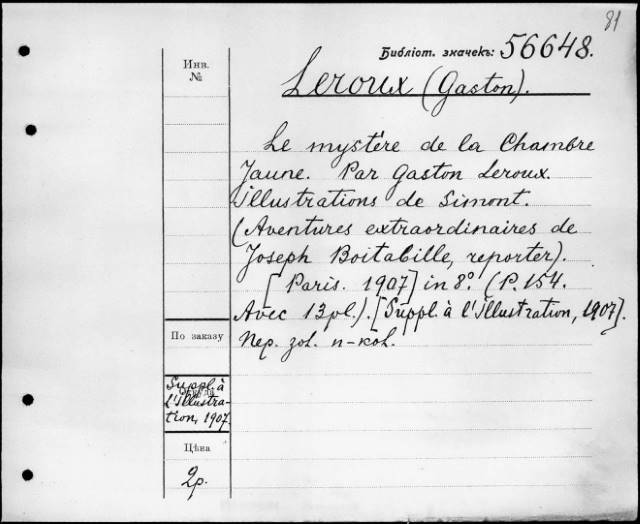 81
Библіот. значекъ: 56648.
Инв.
№
Leroux (Gaston).
Le mystère de la Chambre
Jaune. Par Gaston Leroux.
Illustrations de Simont.
(Aventures extraordinaires de
Joseph Boitabille, reporter).
[Paris. 1907] in 8°. (P. 154.
Avec 13 pl.). [Suppl. à l'Illustration, 1907].
Пер. зол. п-кож.
По заказу
Откуда
Suppl. à
l'Illustra-
tion, 1907.
Цѣна
2р.